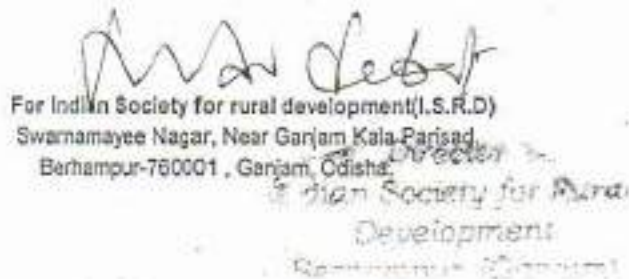 For Indian Society for rural development(I.S.R.D)
Swarnamayee Nagar, Near Ganjam Kala Parisad,
Berhampur-760001 , Ganjam, Odisha.
Director
Indian Society for Rural
Development